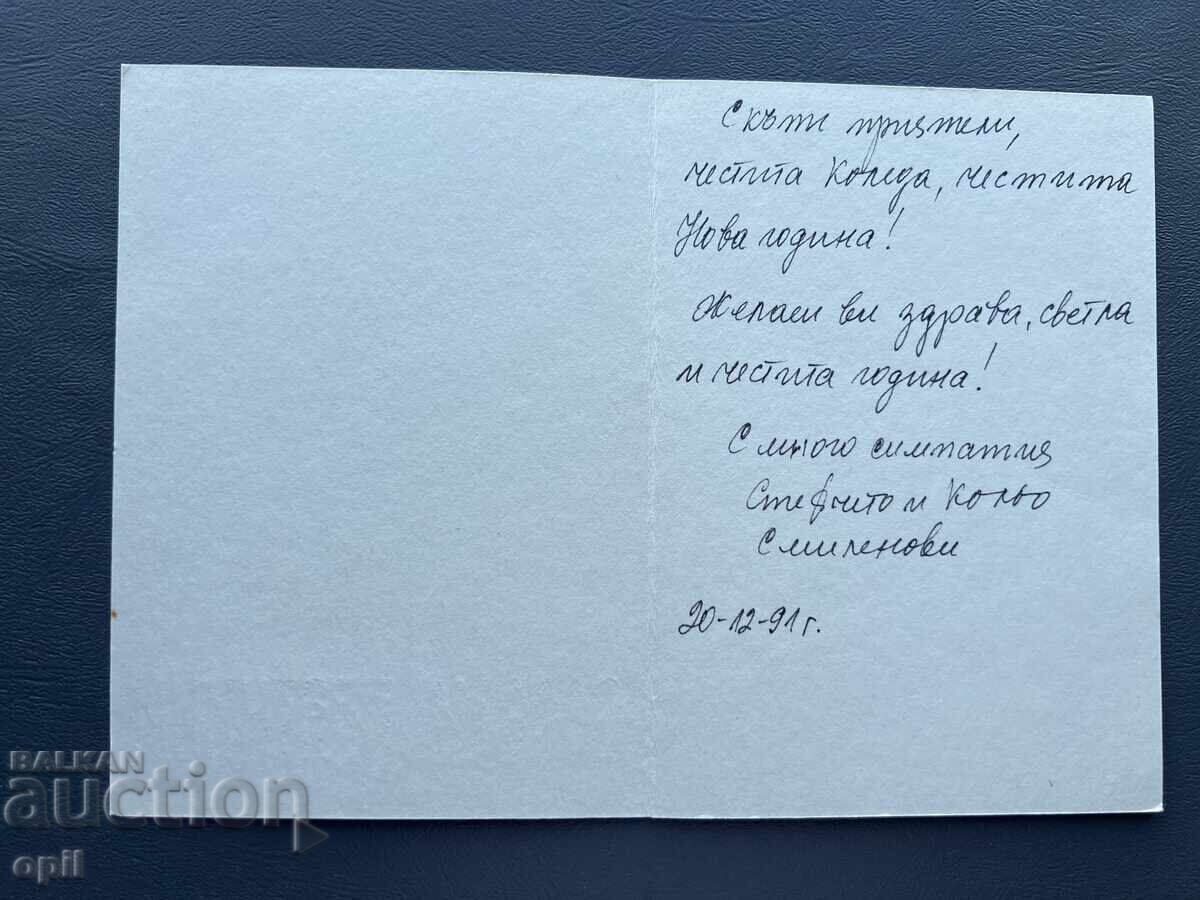 Скъпи приятели,
честита Коледа, честита
Нова година!
Желаем ви здрава, светла
и честита година!
С много симпатия
Стефчето и Кольо
Смиленови
20-12-91 г.
BALKAN
auction
opil